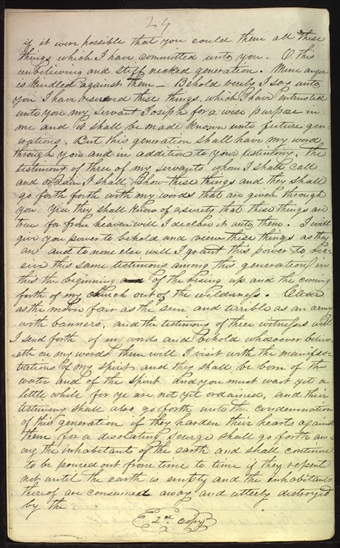 24
if it were possible that you could them all these
things which I have committed unto you. O this
unbelieving and stiff necked generation. Mine anger
is kindled against them — Behold verily I say unto
you I have reserved these things, which I have intrusted
unto you my servant Joseph for a wise purpose in
me and it shall be made known unto future gen-
erations. But this generation shall have my word
through you and in addition to your testimony, the
testimony of three of my servants whom I shall call
and ordain, I shall show these things and they shall
go forth forth with my words that are given through
you. Yea they shall know of a surety that these things are
true for from heaven will I declare it unto them. I will
give you power to behold and view these things as they
are and to none else will I grant this power to re-
ceive this same testimony among this generation, in
this the beginning of the rising up and the coming
forth of my church out of the wilderness. Clear
as the moon fair as the sun and terrible as an army
with banners, and the testimony of three witnesses will
I send forth of my words and behold whosoever believ-
eth on my words them will I visit with the manifes-
tations of my Spirit, and they shall be born of the
water and of the Spirit. and you must wait yet a
little while for ye are not yet ordained, and their
testimony shall also go forth unto the condemnation
of this generation if they harden their hearts against
them, for a desolating scourge shall go forth am-
ong the inhabitants of the earth and shall continue
to be poured out from time to time if they repent
not until the earth is empty and the inhabitants
thereof are consumed away and utterly destroyed
by the
2nd Copy